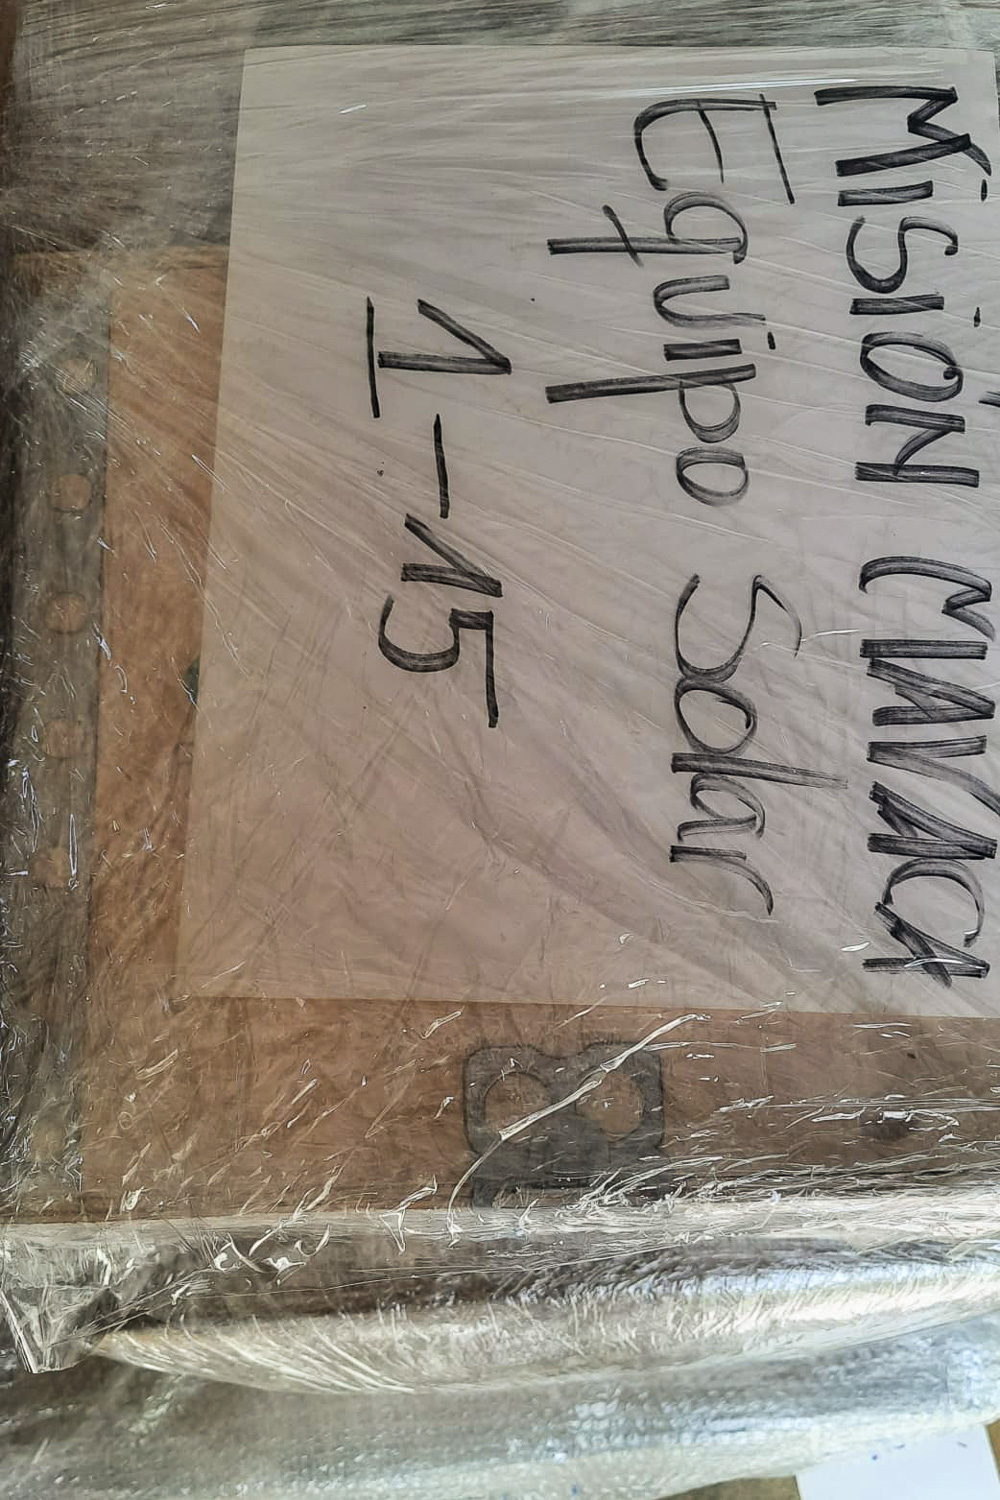 MiSiÓN MAVACA
Equipo Solar
1-15